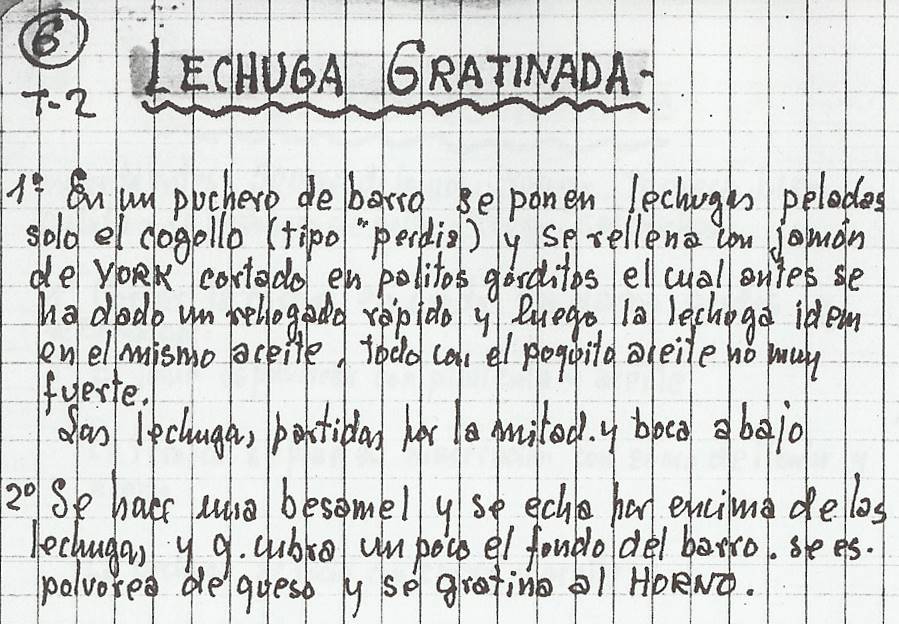 6
T-2
LECHUGA GRATINADA-
1º En un puchero de barro se ponen lechugas peladas
solo el cogollo (tipo "perdiz) y se rellena con jamón
de YORK cortado en palitos gorditos el cual antes se
ha dado un rehogado rápido y luego la lechuga idem
en el mismo aceite, todo con el poquito aceite no muy
fuerte.
Las lechugas partidas por la mitad. y boca abajo
2º Se hace una besamel y se echa por encima de las
lechugas y q. cubra un poco el fondo del barro. se es-
polvorea de queso y se gratina al HORNO.